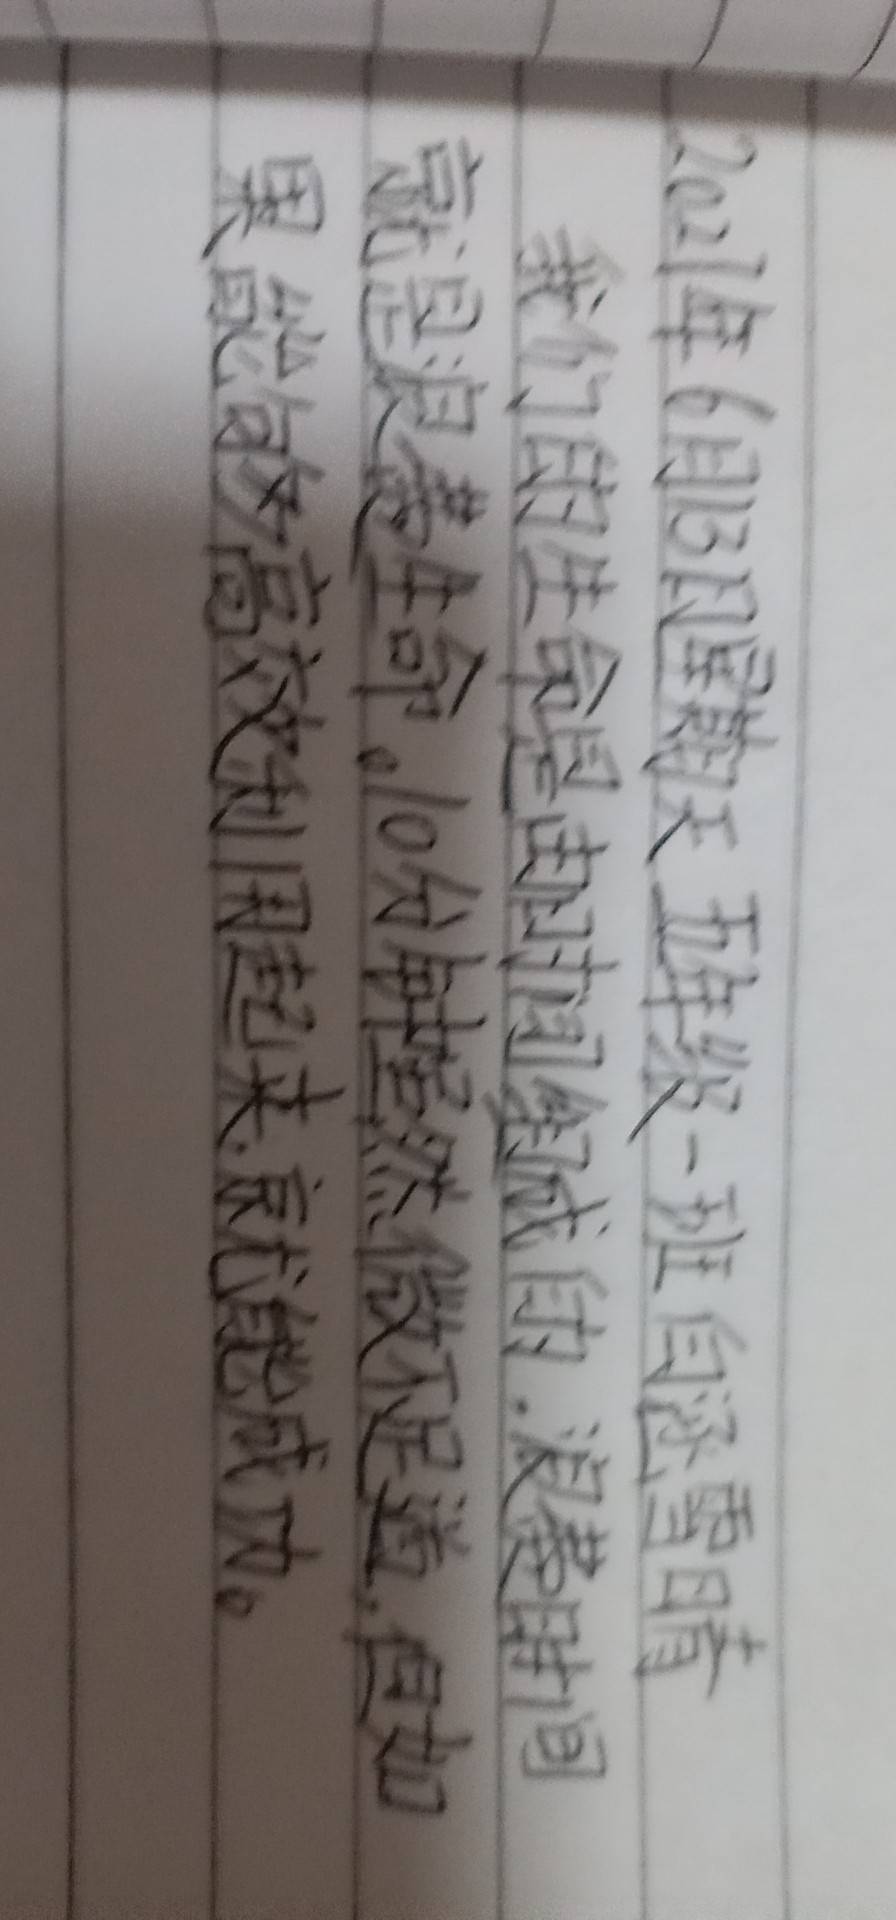 2021年6月13日星期天 五年级一班 白泓雪晴
我们的生命是由时间组成的.浪费时间
就是浪费生命。10分钟虽然微不足道.但如
果能够高效利用起来.就能成功。